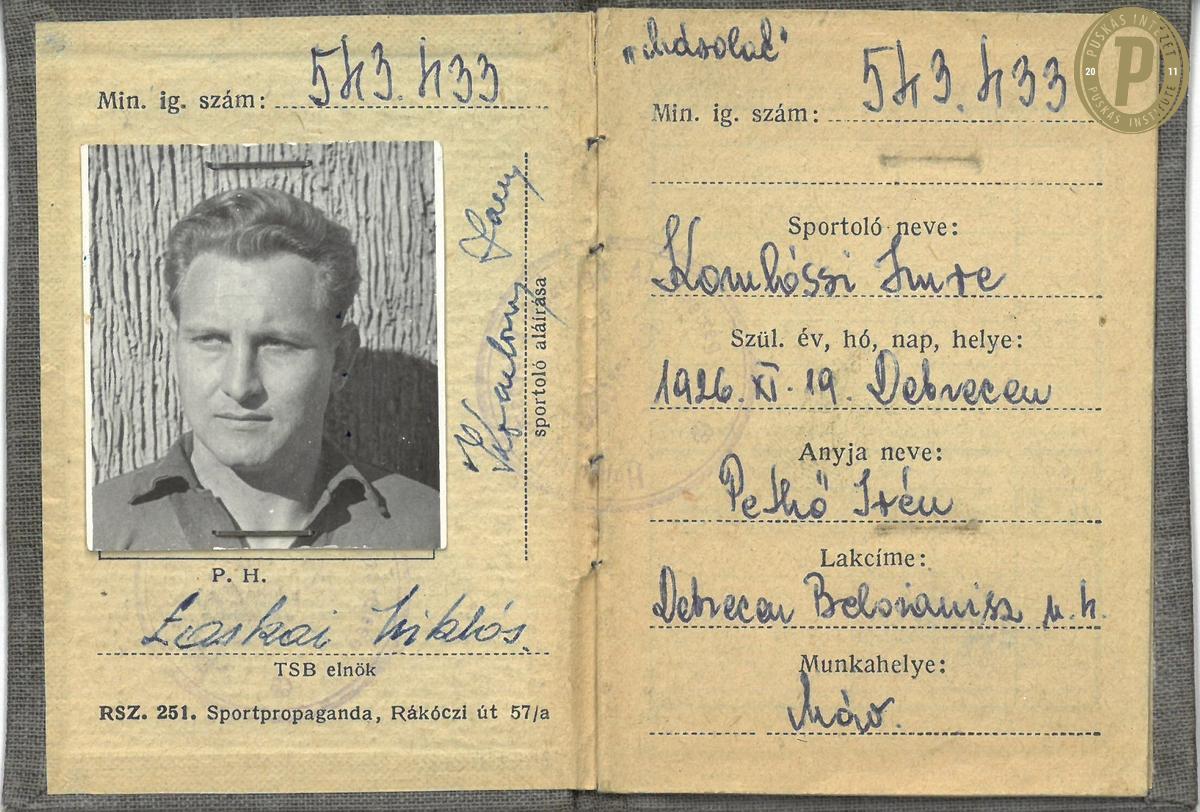 Min. ig. szám: 543.433
sportoló aláírása
P. H.
Laskai Miklós.
TSB elnök
RSZ. 251. Sportpropaganda, Rákóczi út 57/a
"Másolat"
Min. ig. szám: 543.433
Sportoló neve:
Komlóssi Imre
Szül. év, hó, nap, helye:
1926. XI. 19. Debrecen
Anyja neve:
Pethő Irén
Lakcíme:
Debrecen Beloianisz u. h.
Munkahelye:
Máv.
PUSKÁS INTÉZET
20 P 11
PUSKÁS INSTITUTE